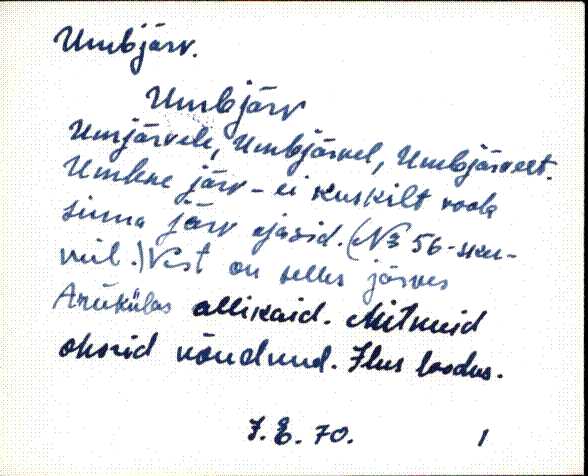 Umbjärv.
Umbjärv
Umjärvele, Umbjärvel, Umbjärvelt.
Umbne järv - ei kuskilt voola
sinna järv ojasid. (№ 56-sku-
mil.) Vist on selles järves
Arukülas allikaid. Mitmeid
ohvrid nõudnud. Ilus loodus.
J. E. 70. 1